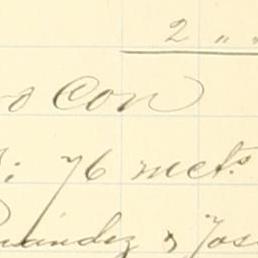 2 " "
o Con
: 76 mets.
nández y José